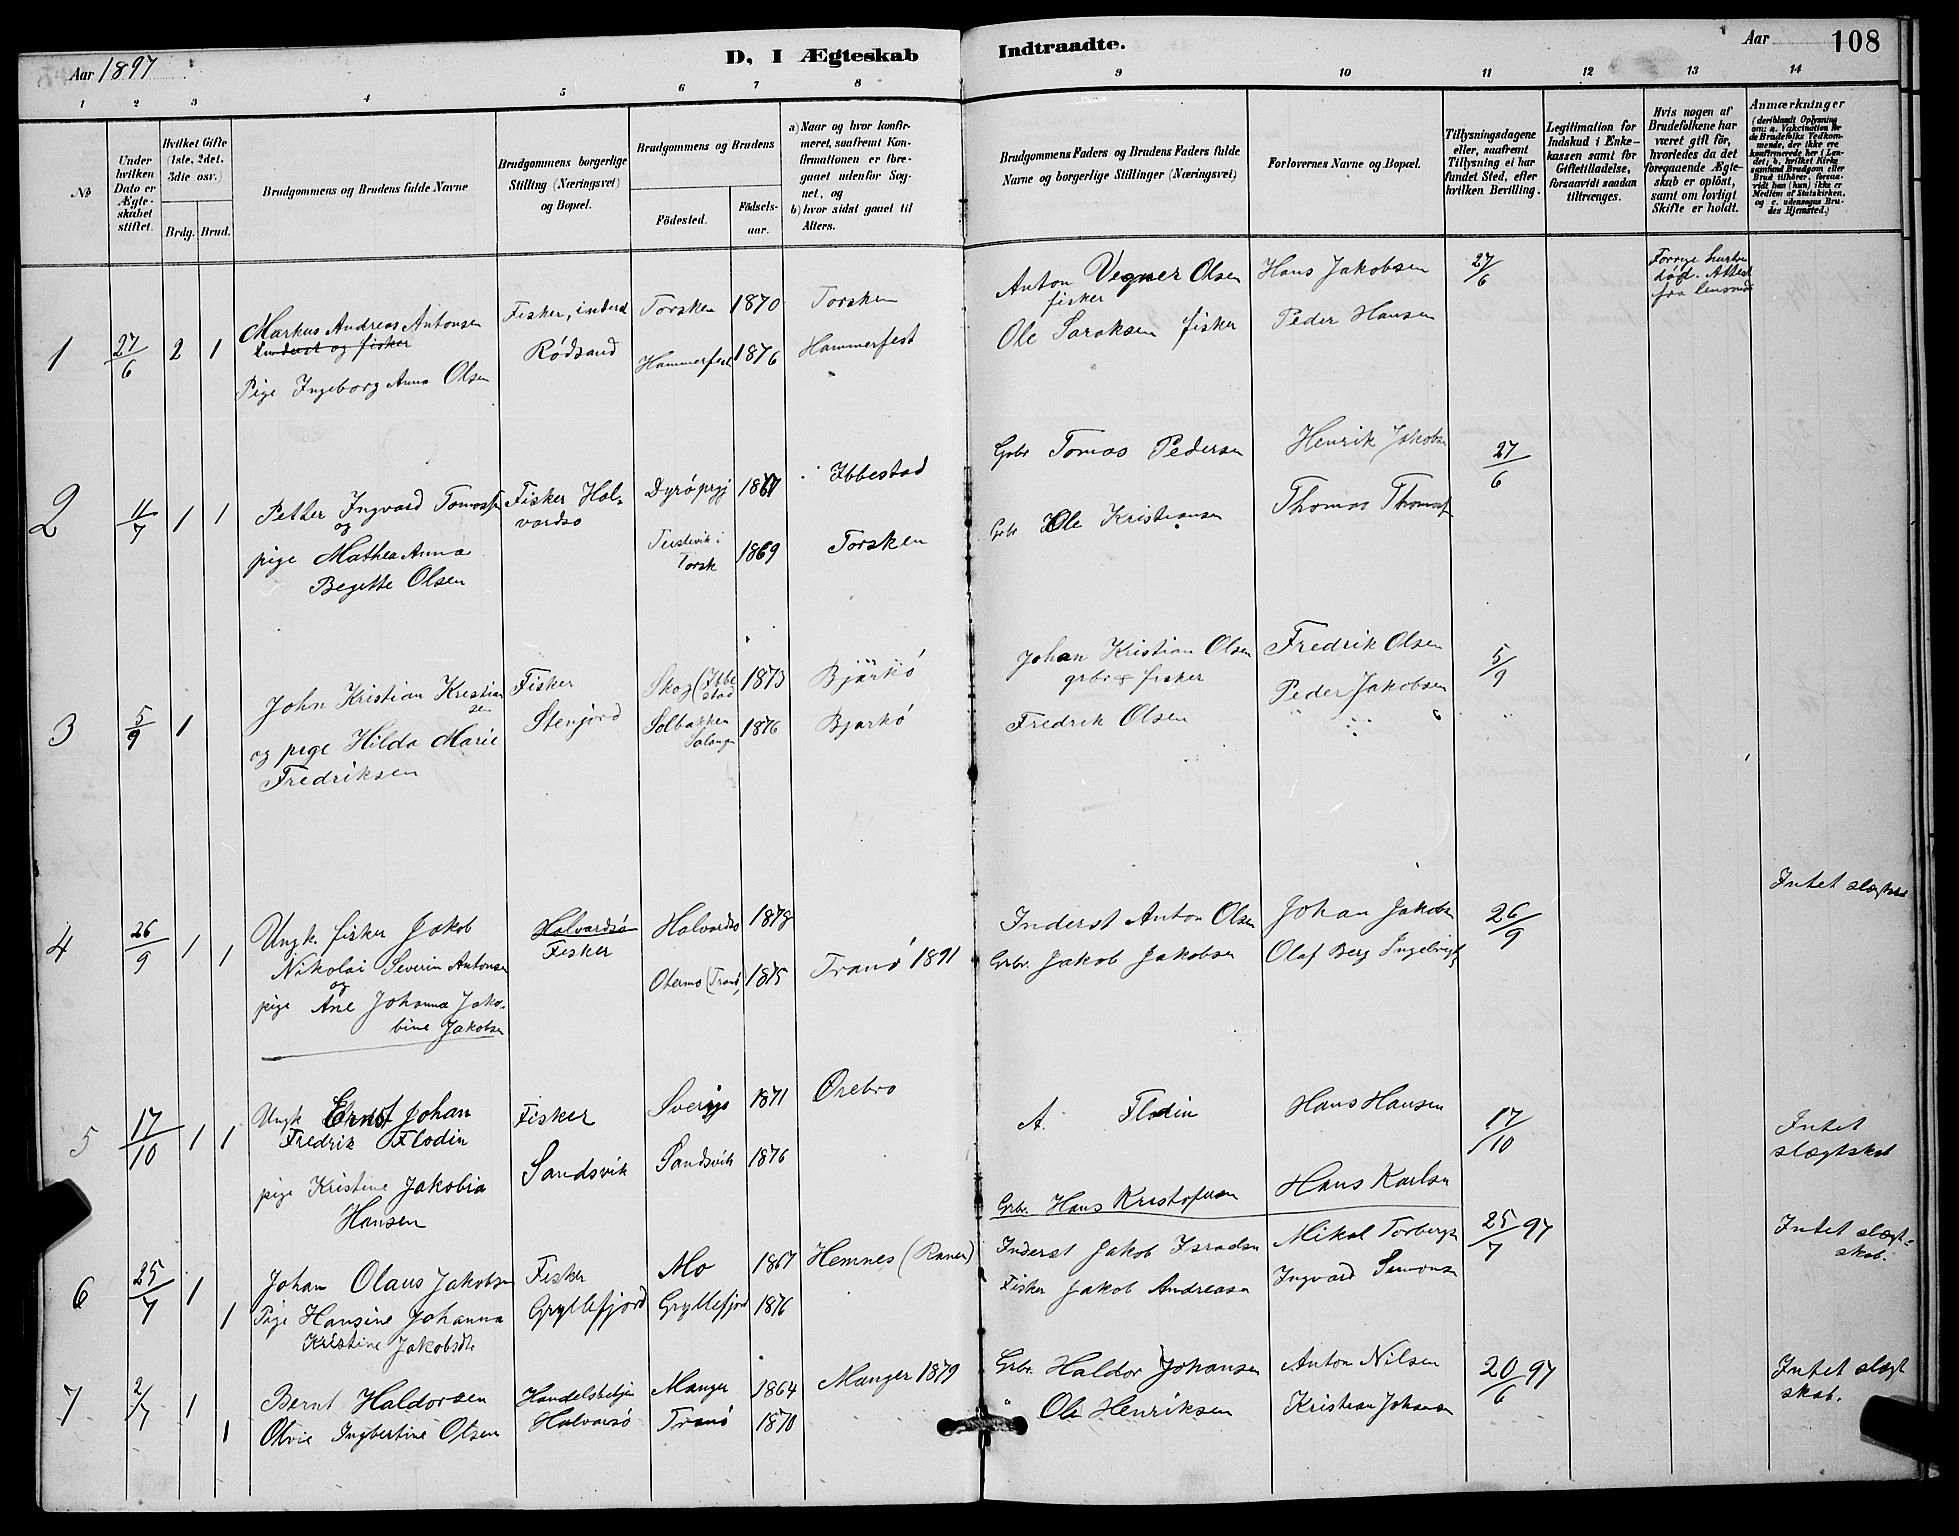 Aar 1897
D, I Ægteskab Indtraadte.
Aar 108
1 2 3 4 5 6 7 8 9 10 11 12 13 14
No
Under hvilken Dato er Ægteskabet stiftet.
Hvilket Gifte (1ste, 2det, 3die osv.)
Brdg. Brud.
Brudgommens og Brudens fulde Navne
Brudgommens borgerlige Stilling (Næringsvei) og Bopæl.
Brudgommens og Brudens
Fødested.
Fødselsaar.
a) Naar og hvor konfirmeret, saafremt Konfirmationen er foregaaet udenfor Sognet, og
b) hvor sidst gaaet til Alters.
Brudgommens Faders og Brudens Faders fulde Navne og borgerlige Stillinger (Næringsvei)
Forlovernes Navne og Bopæl.
Tillysningsdagene eller, saafremt Tillysning ei har fundet Sted, efter hvilken Bevilling.
Legitimation for Indskud i Enkekassen samt for Giftetilladelse, forsaavidt saadan tiltrænges.
Hvis nogen af Brudefolkene har været gift før, hvorledes da det foregaaende Ægteskab er opløst, samt om lovligt Skifte er holdt.
Anmærkninger (deriblandt Oplysning om: a. Vakcination for de Brudefolks Vedkommende, der ikke ere konfirmerede her i Landet; b. hvilket Kirkesamfund Brudgom eller Brud tilhører, forsaavidt han (hun) ikke er Medlem af Statskirken, og c. udensogns Brudes Hjemsted.)
1 27/6 2 1
Markus Andreas Antonsen
Inderst og fisker
Pige Ingeborg Anna Olsen
Fisker, inderst
Rødsand
Torsken 1870 Torsken
Hammerfest 1876 Hammerfest
Anton Vegner Olsen
fisker
Ole Saraksen fisker
Hans Jakobsen
Peder Hansen
27/6
Forrige hustru
død. Attest
fra lensmd
2 11/7 1 1
Petter Ingvard Tomass
og
pige Mathea Anna
Begette Olsen
Fisker Hal-
vardsø
Dyrø prgj 1867 Ibbestad
Torsk 1869 Torsken
Grbr Tomas Pedersen
Grbr Ole Kristiansen
Henrik Jakobsen
Thomas Thomass
27/6
3 5/9 1
John Kristian Kristian
sen
og pige Hilda Marie
Fredriksen
Fisker
Stenjord
Skog (Ibbe
stad 1873 Bjärkö
Solbakken
Salangen 1876 Bjarkö
Johan Kristian Olsen
grbr & fisker
Fredrik Olsen
Fredrik Olsen
Peder Jakobsen
5/9
4 26/9 1 1
Ungk. fisker Jakob
Nikolai Severin Antonsen
og
pige Ane Johanna Jako-
bine Jakobsen
Halvardsø
Fisker
Halvardsø 1878
Otermo (Tranø) 1875 Tranø 1891
Inderst Anton Olsen
Grbr. Jakob Jakobsen
Johan Jakobsen
Olaf Berg
26/9
Intet slægtskab
5 17/10 1 1
Ungk Ernst Johan
Fredrik Flodin
pige Kristine Jakobia
Hansen
Fisker
Sandsvik
Sverige 1871 Orebro
Sandsvik 1876
A. Flodin
Grbr. Hans Kristofersen
Hans Hansen
Hans Karlsen
17/10
Intet
slægtskab
6 25/7 1 1
Johan Olaus Jakobsen
Pige Hansine Johanna
Kristine Jakobsdtr
Fisker
Gryllefjord
Mo 1867 Hemnes (Ranen)
Gryllefjord 1876
Inderst Jakob Israelsen
Fisker Jakob Andreasen
Mikal Torbergs
Ingvard Simonsen
25/7 97
Intet slægt-
skab.
7 2/7 1 1
Bernt Haldorsen
Olvie Ingbertine Olsen
Handelsbetjen
Halvarsø
Manger 1864 Manger 1879
Tranø 1870
Grbr. Haldor Johansen
" Ole Henriksen
Anton Nilsen
Kristian Johansen
20/6 97
Intet slægt
skab.